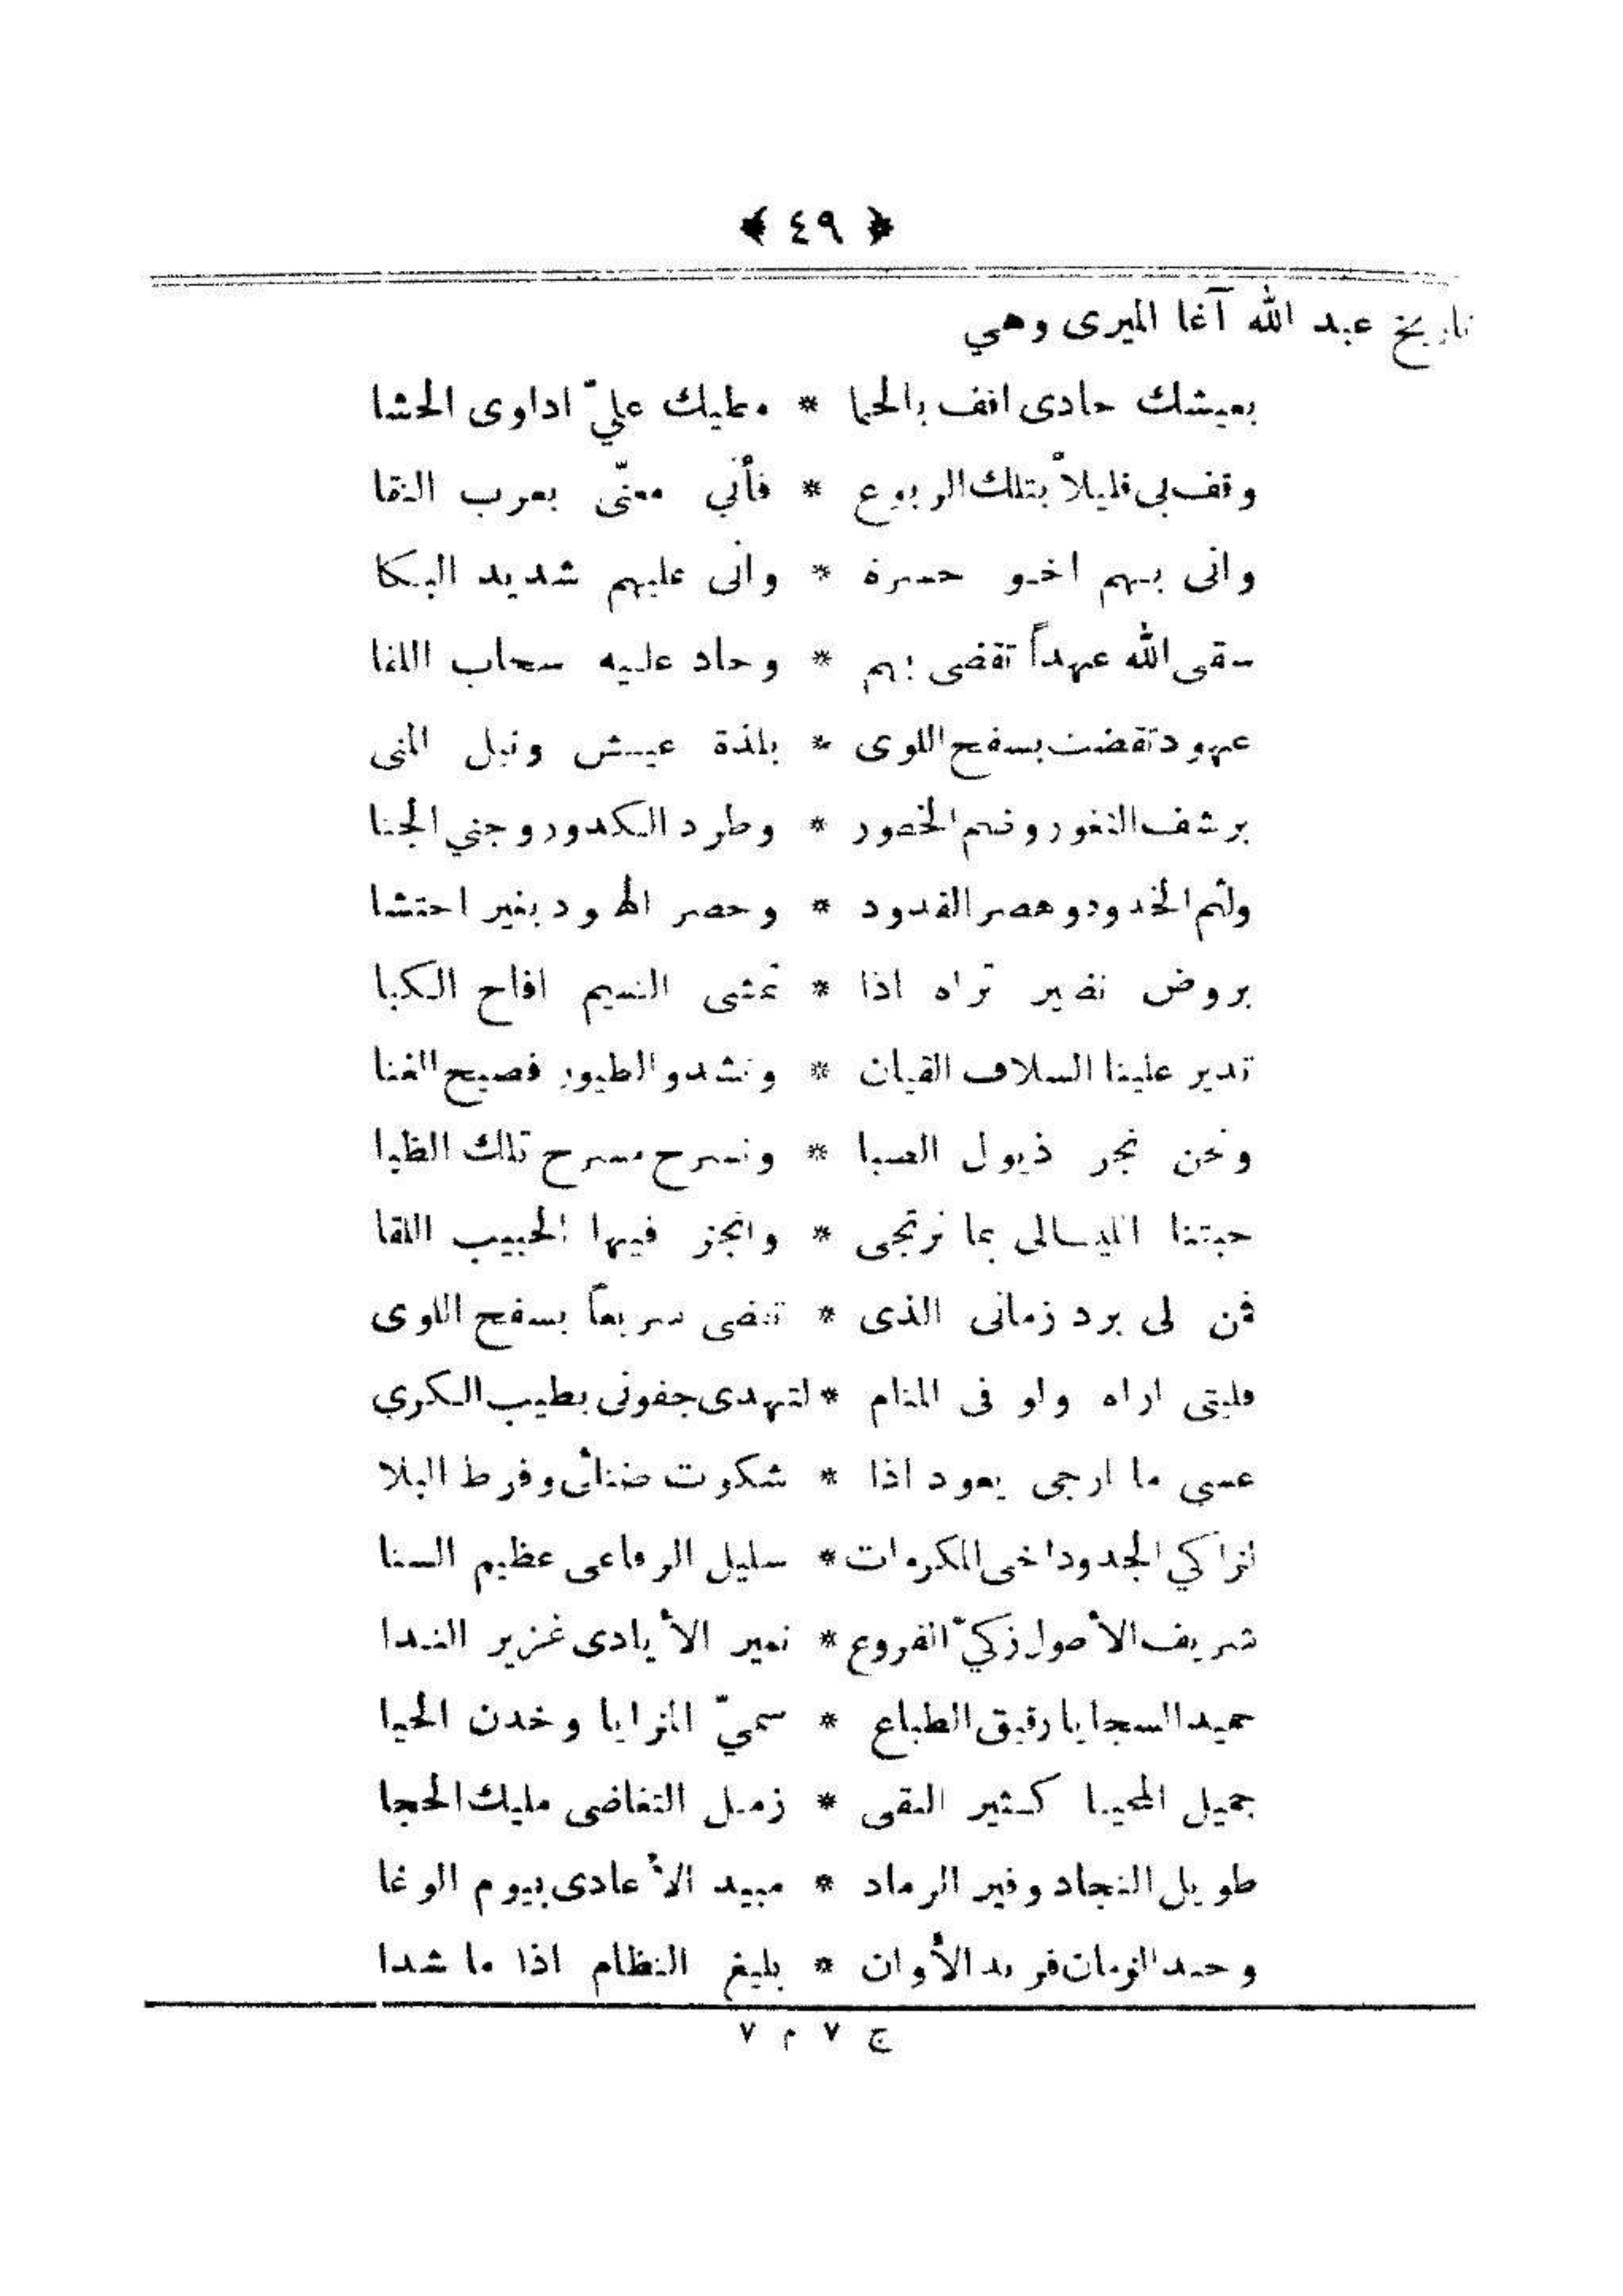 ﴿ ٤٩ ﴾
تاريخ عبد الله آغا الميرى وهي
بعيشك حادى اقف بالحما * مطيك عليّ اداوى الحشا
وقف بى قليلاً بتلك الربوع * فأني معنّى بعرب النقا
وانى بهم اخو حسرة * وانى عليهم شديد البكا
سقى الله عهداً تقضى بهم * وجاد عليه سحاب اللقا
عهود تقضت بسفح اللوى * بلذة عيش ونيل المنى
برشف الثغور وضم الخصور * وطرد الكدور وجني الجنا
ولثم الخدود وهصر القدود * وحصر النهود بغير احتشا
بروض نضير تراه اذا * تمشى النسيم افاح الكبا
تدير علينا السلاف القيان * وتشدو الطيور فصيح الغنا
ونحن نجر ذيول الصبا * ونسرح مسرح تلك الظبا
حبتنا الليالى بما نرتجى * وانجز فيها الحبيب اللقا
فمن لى برد زمانى الذى * تقضى سريعاً بسفح اللوى
فليتى اراه ولو فى المنام * لتهدى جفونى بطيب الكري
عسي ما ارجى يعود اذا * شكوت ضنائى وفرط البلا
لزاكي الجدود اخى المكرمات * سليل الرفاعى عظيم السنا
شريف الأصول زكيّ الفروع * نمير الأيادى غزير الندا
حميد السجايا رقيق الطباع * سميّ المزايا وخدن الحيا
جميل المحيا كثير التقى * زميل التغاضى مليك الحجا
طويل النجاد وفير الرماد * مبيد الأعادى بيوم الوغا
وحيد الزمان فريد الأوان * بليغ النظام اذا ما شدا
ج ٧ م ٧